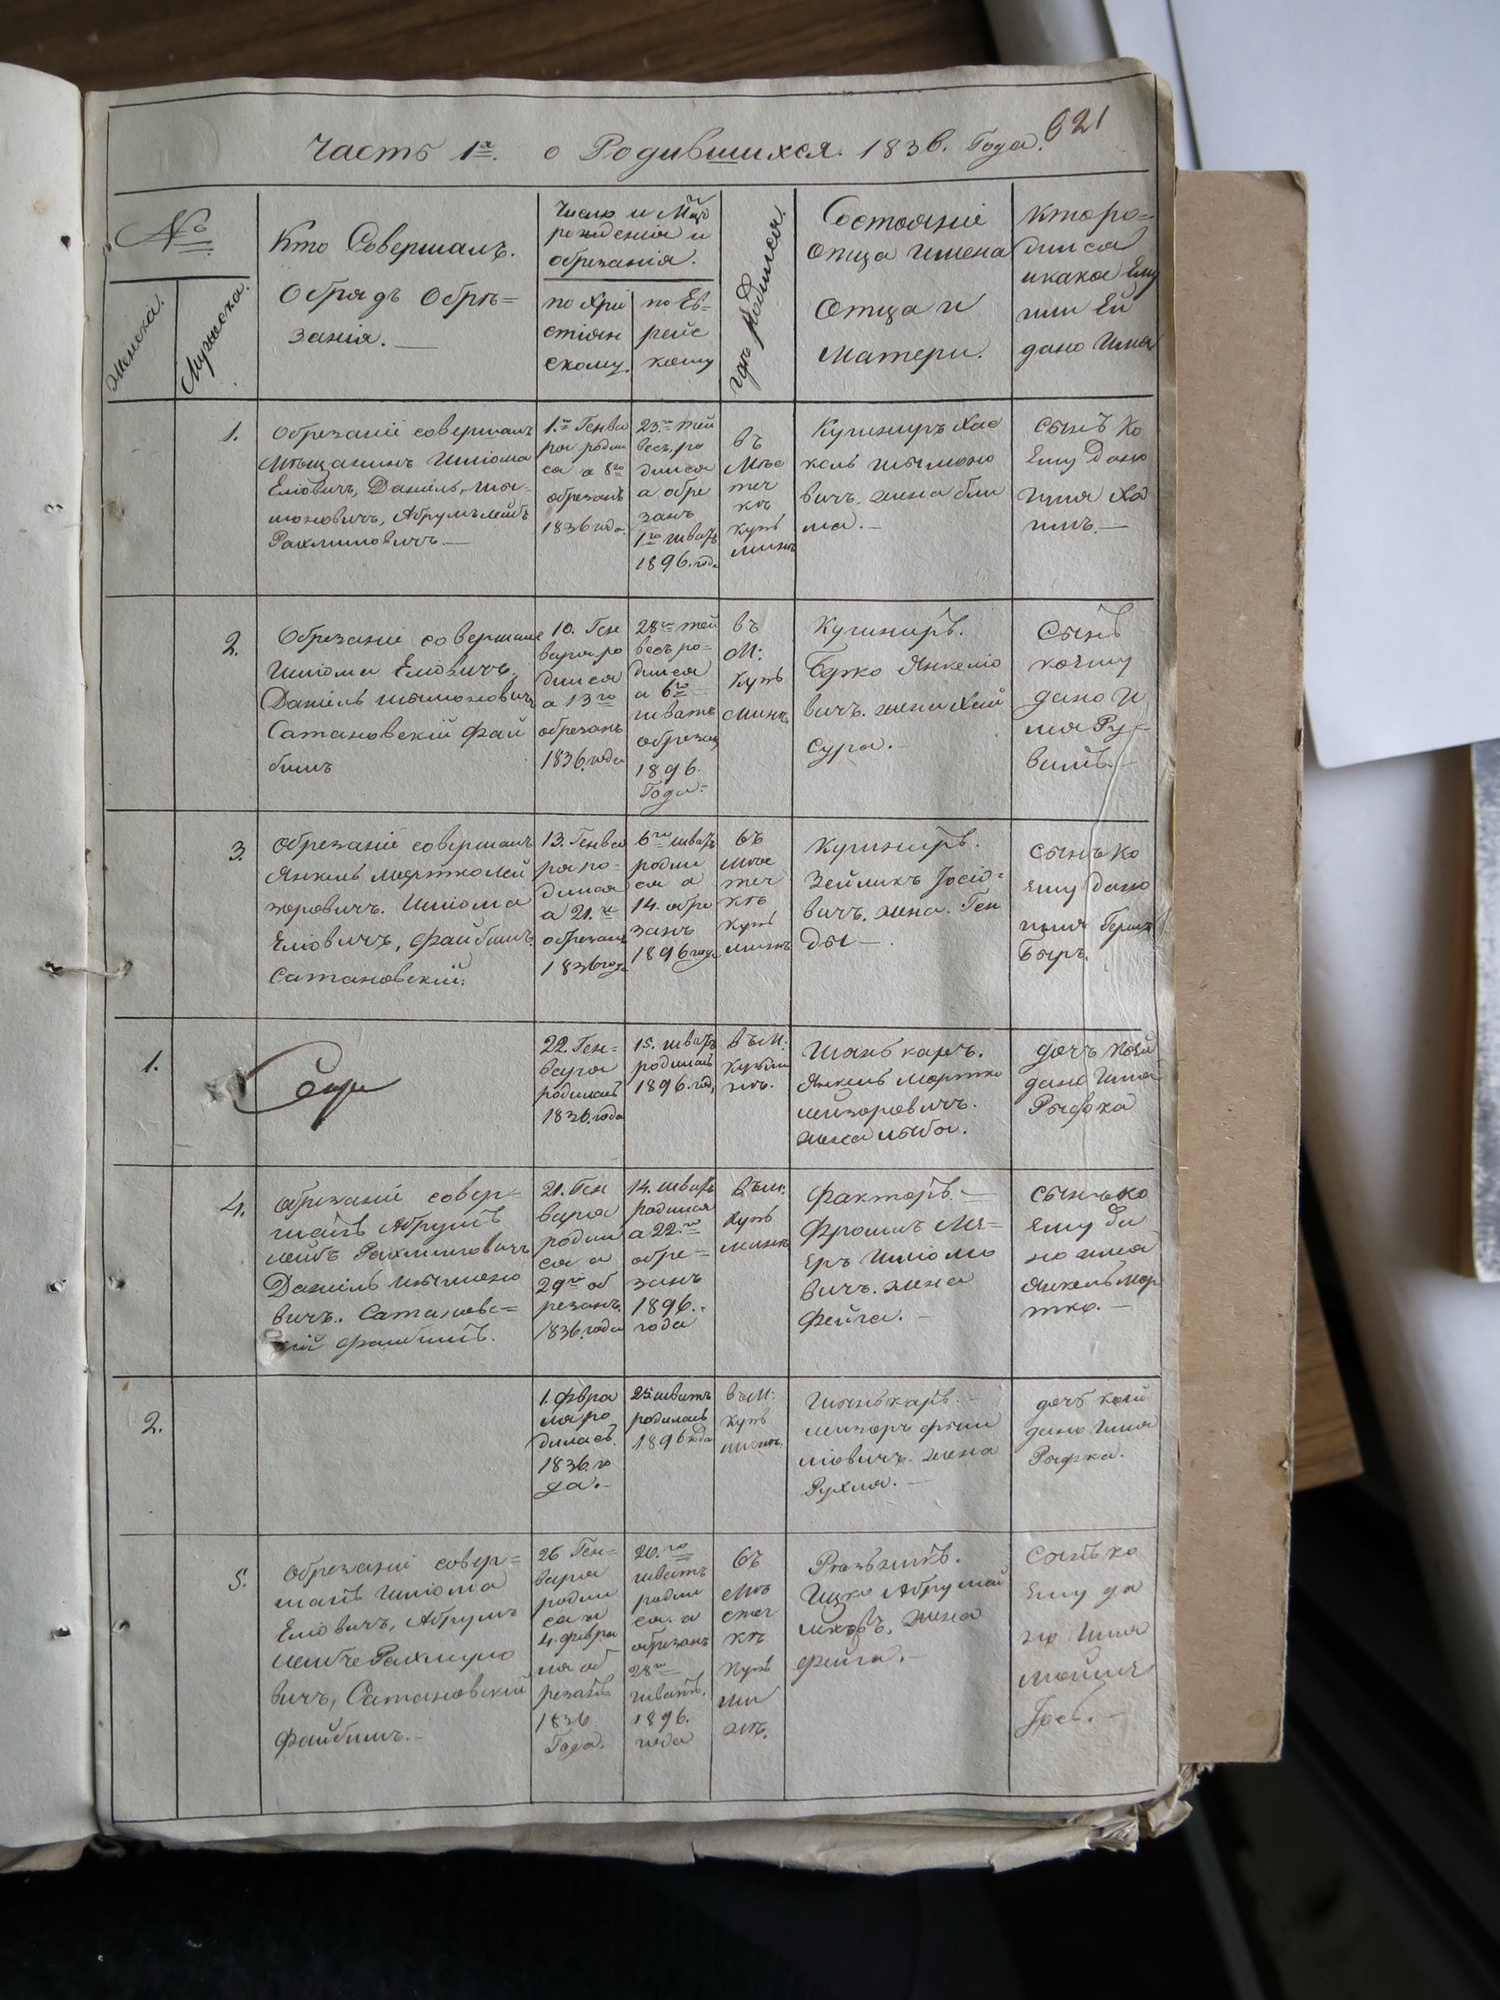 621
Часть 1я. о Родившихся 1836. Года.
№
Женска.
Мужеска.
Кто Совершалъ.
Обрядъ Обрѣ=
занія.
Число и Мцъ
рожденія и
обрезанія.
по Хри
стіян
скому.
по Ев=
рейс
кому
гдѣ родился.
Состояніе
Отца имена
Отца и
Матери.
Кто ро=
дился
и какое Ему
или Ей
дано Имя
1.
Обрезаніе совершалъ
Мѣщанинъ Шліома
Еліовичъ, Даніель, Шы=
моновичъ, Абрумъ лейбъ
Рахмиловичъ.
1го Генва
ря родил
ся а 8го
обрезанъ
1836 года.
23го тей
весъ, ро
дился
а обре
занъ
1го шватъ
1896. года
въ
Мѣс
теч
кѣ
Кузь
минѣ
Кушниръ Хас
кель Шымоно
вичъ. жена бли
ма.
Сынъ ко
Ему дано
имя Ха
имъ.
2.
Обрезаніе совершалъ
Шліома Еліовичъ.
Даніель Шымоновичъ
Сатановскій Фай
бишъ
10. Ген
варя ро
дился
а 13го
обрезанъ
1836. года
28го тей
весъ ро=
дился
а 6го
шватъ
обрезанъ
1896.
Года.
въ
М:
Кузь
минѣ
Кушниръ.
Берко Янкеліо
вичъ. жена Хай
сура.
Сынъ
коему
дано И
мя Ру=
винъ.
3.
Обрезаніе совершалъ
Янкель Мортко Лей
зоровичъ. Шліома
Еліовичъ, Файбишъ.
Сатановскій.
13. Генва
ря ро=
дился
а 21.го
обрезанъ
1836 года
6го шватъ
родил
ся а
14. обре
занъ
1896 года
въ
Мѣс
теч
кѣ
Кузь
минѣ
Кушниръ.
Зейликъ Іосіо=
вичъ. жена. Ген
ды
Сынъ ко
ему дано
имя Герш
Беръ.
1.
22. Ген=
варя
родилась
1836. года
15. шватъ
родилась
1896. года
въ М:
Кузьми
нѣ.
Шанькаръ.
Янкель Мортко
лизоровичъ.
жена лыба.
дочь коей
дано Имя
Рыфка
4.
Обрезаніе совер=
шалъ Абрумъ
лейбъ Рахмиловичъ
Даніель Шымоно
вичъ. Сатановс=
кій Файбишъ.
21. Ген
варя
родил
ся а
29го об
резанъ.
1836. года
14. шватъ
родился
а 22.го
обре=
занъ
1896.
года
въ М.
Кузь
минѣ
Факторъ.
Фроимъ Ме=
еръ Шліомо
вичъ. жена
Фейга.
Сынъ ко
ему да
но имя
Янкель Мор
тко.
2.
1. Февра
ля ро
дилась.
1836. го
да.
25 шватъ
родилась
1896 года
въ М:
Кузь
минѣ.
Шынькаръ.
лизоръ
ліовичъ. жена
Рухля.
дочь коей
дано Имя
Рыфка.
5.
Обрезаніе совер=
шалъ Шліома
Еліовичъ, Абрумъ
лейбъ Рахмило
вичъ, Сатановскій
Файбишъ.
26 Ген=
варя
родил
ся и
4. февра
ля об
резанъ
1836
Года.
20.го
шватъ
родил
ся. а
обрезанъ
28го
шватъ.
1896.
года
въ
Мѣ
стеч
кѣ
Кузь
ми
нѣ.
Резьникъ.
Ицко Абрумай
жена
Фейга.
Сынъ ко
Ему да
но Имя
Мойше
Іос.